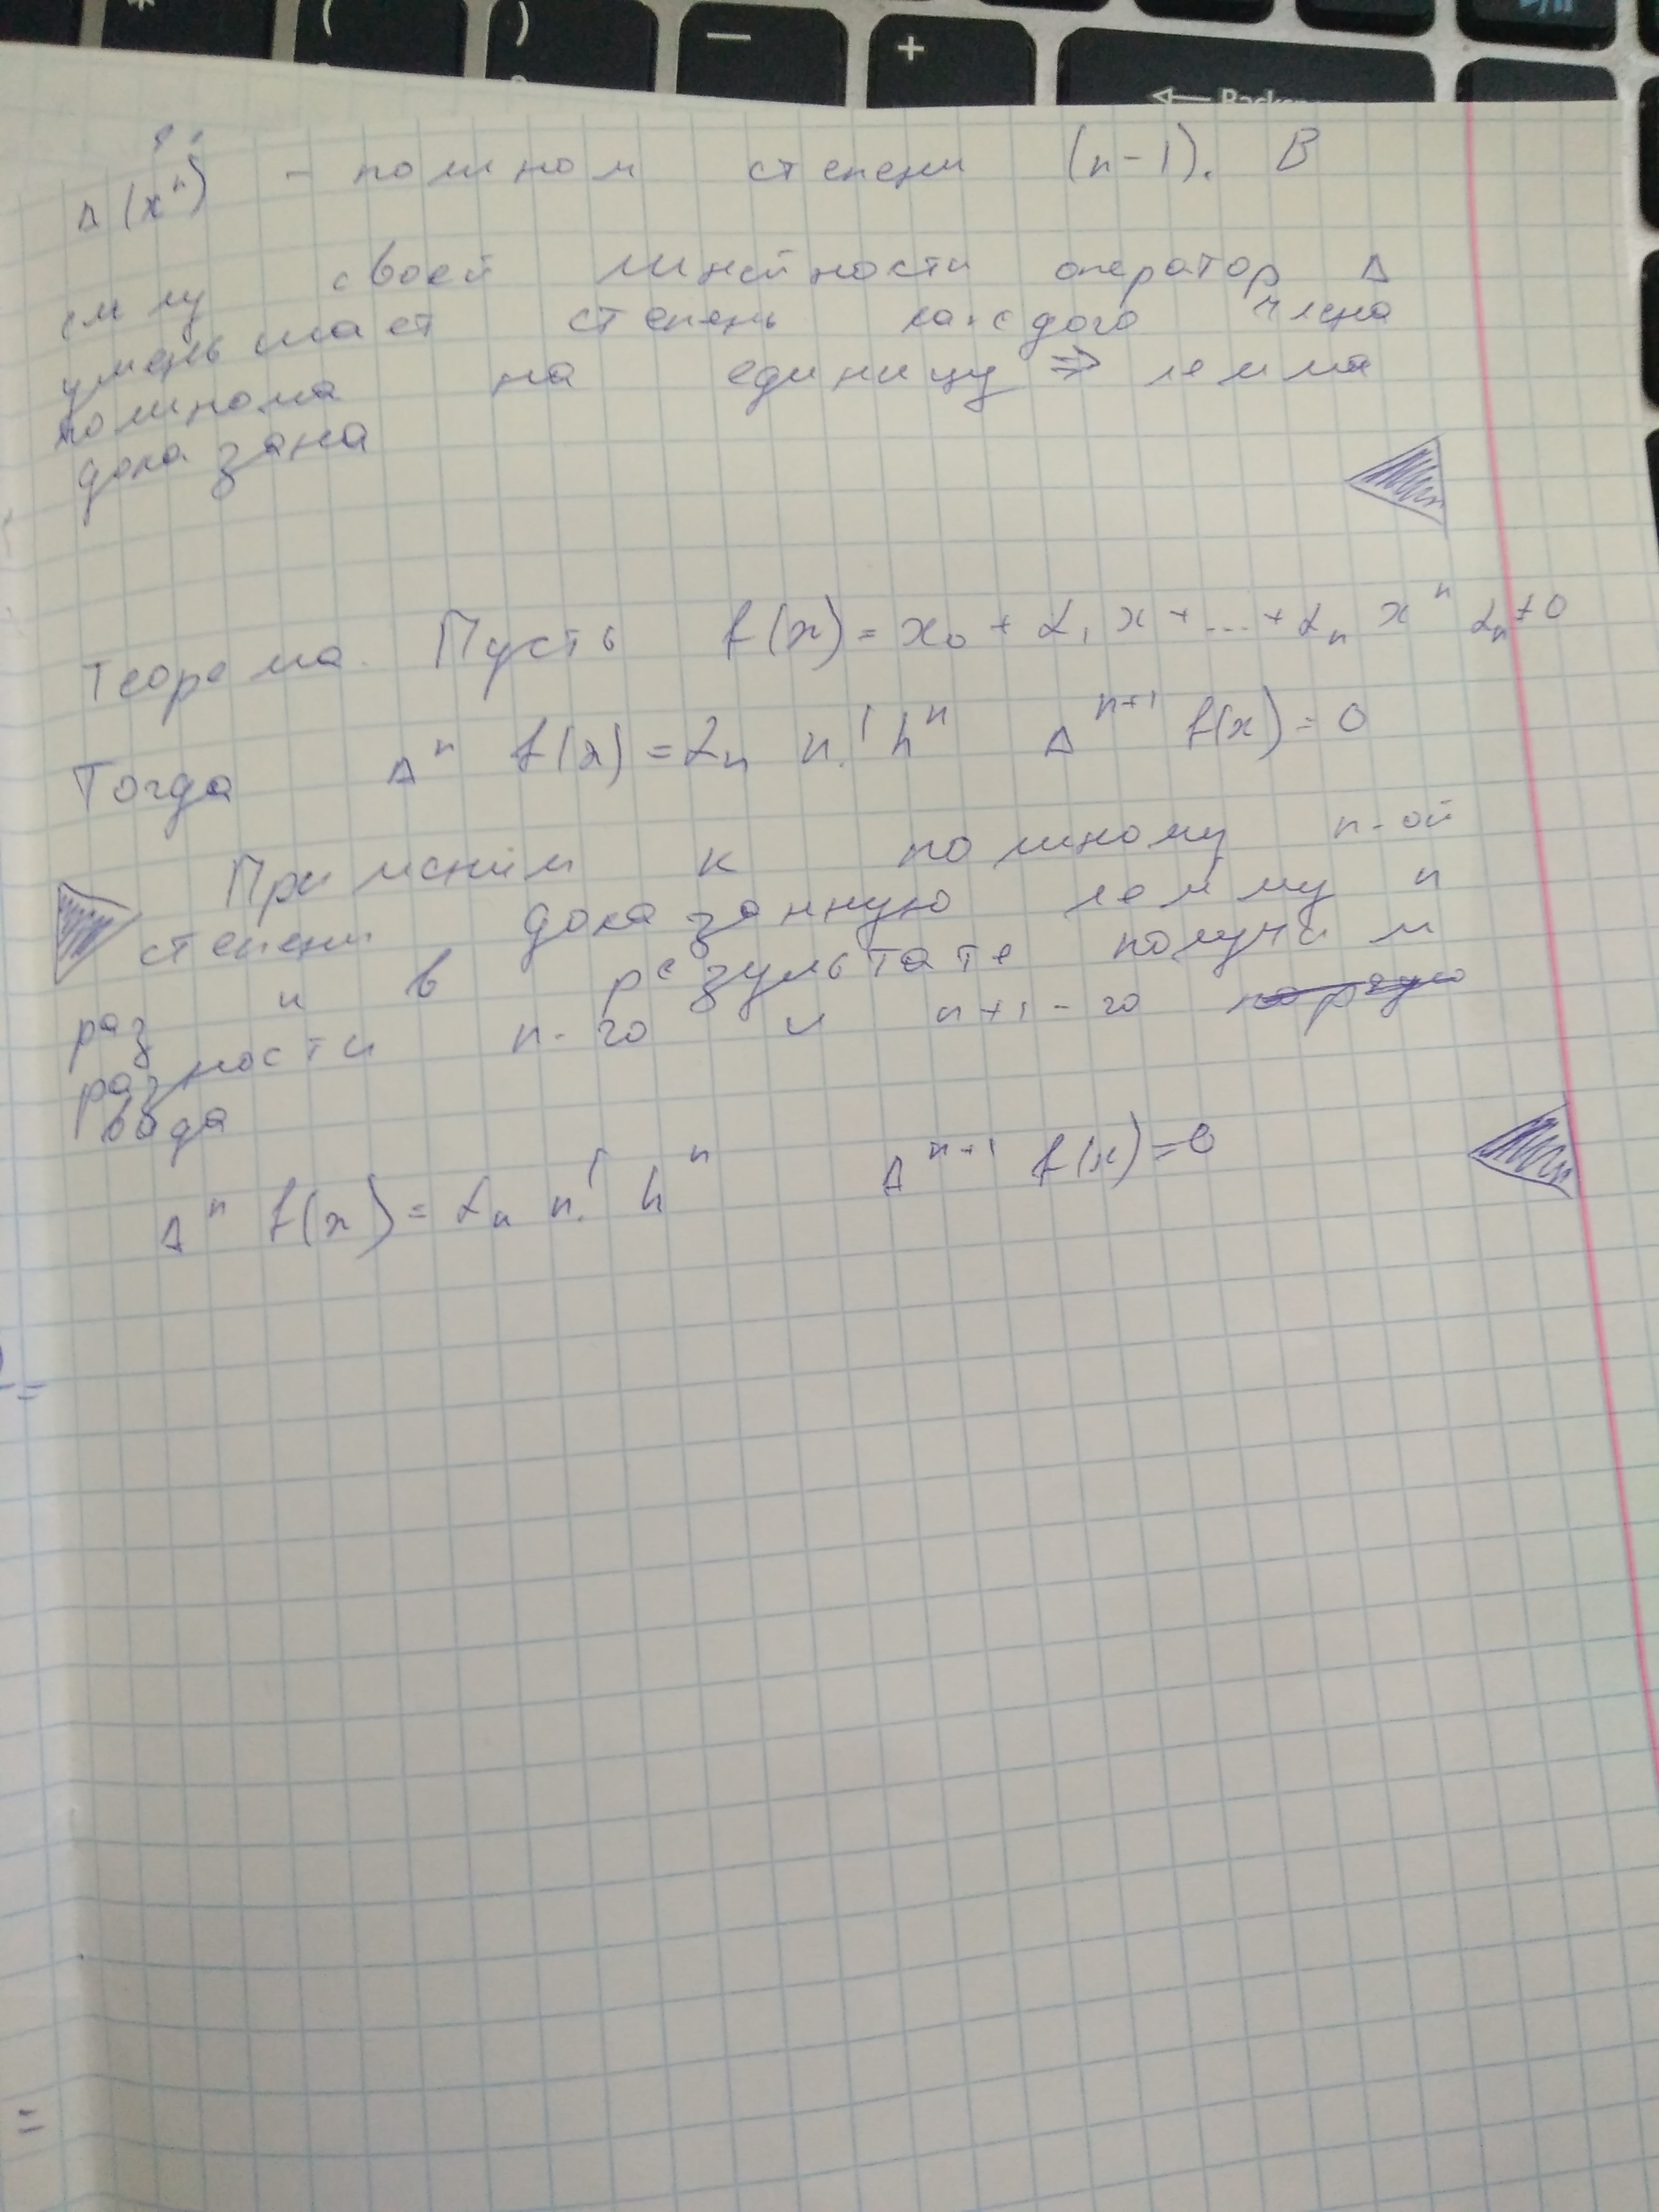 * ( ) — +
Backsp
Δ(xⁿ) - полином степени (n-1). В
силу своей линейности оператор Δ
уменьшает степень каждого члена
полинома на единицу ⇒ лемма
доказана
Теорема. Пусть f(x) = x₀ + α₁ x + ... + αₙ xⁿ αₙ ≠ 0
Тогда Δⁿ f(x) = αₙ n! hⁿ Δⁿ⁺¹ f(x) = 0
Применим к полиному n-ой
степени доказанную лемму n
раз и в результате получим
разности n-го и n+1-го
вида
Δⁿ f(x) = αₙ n! hⁿ Δⁿ⁺¹ f(x) = 0
=
=